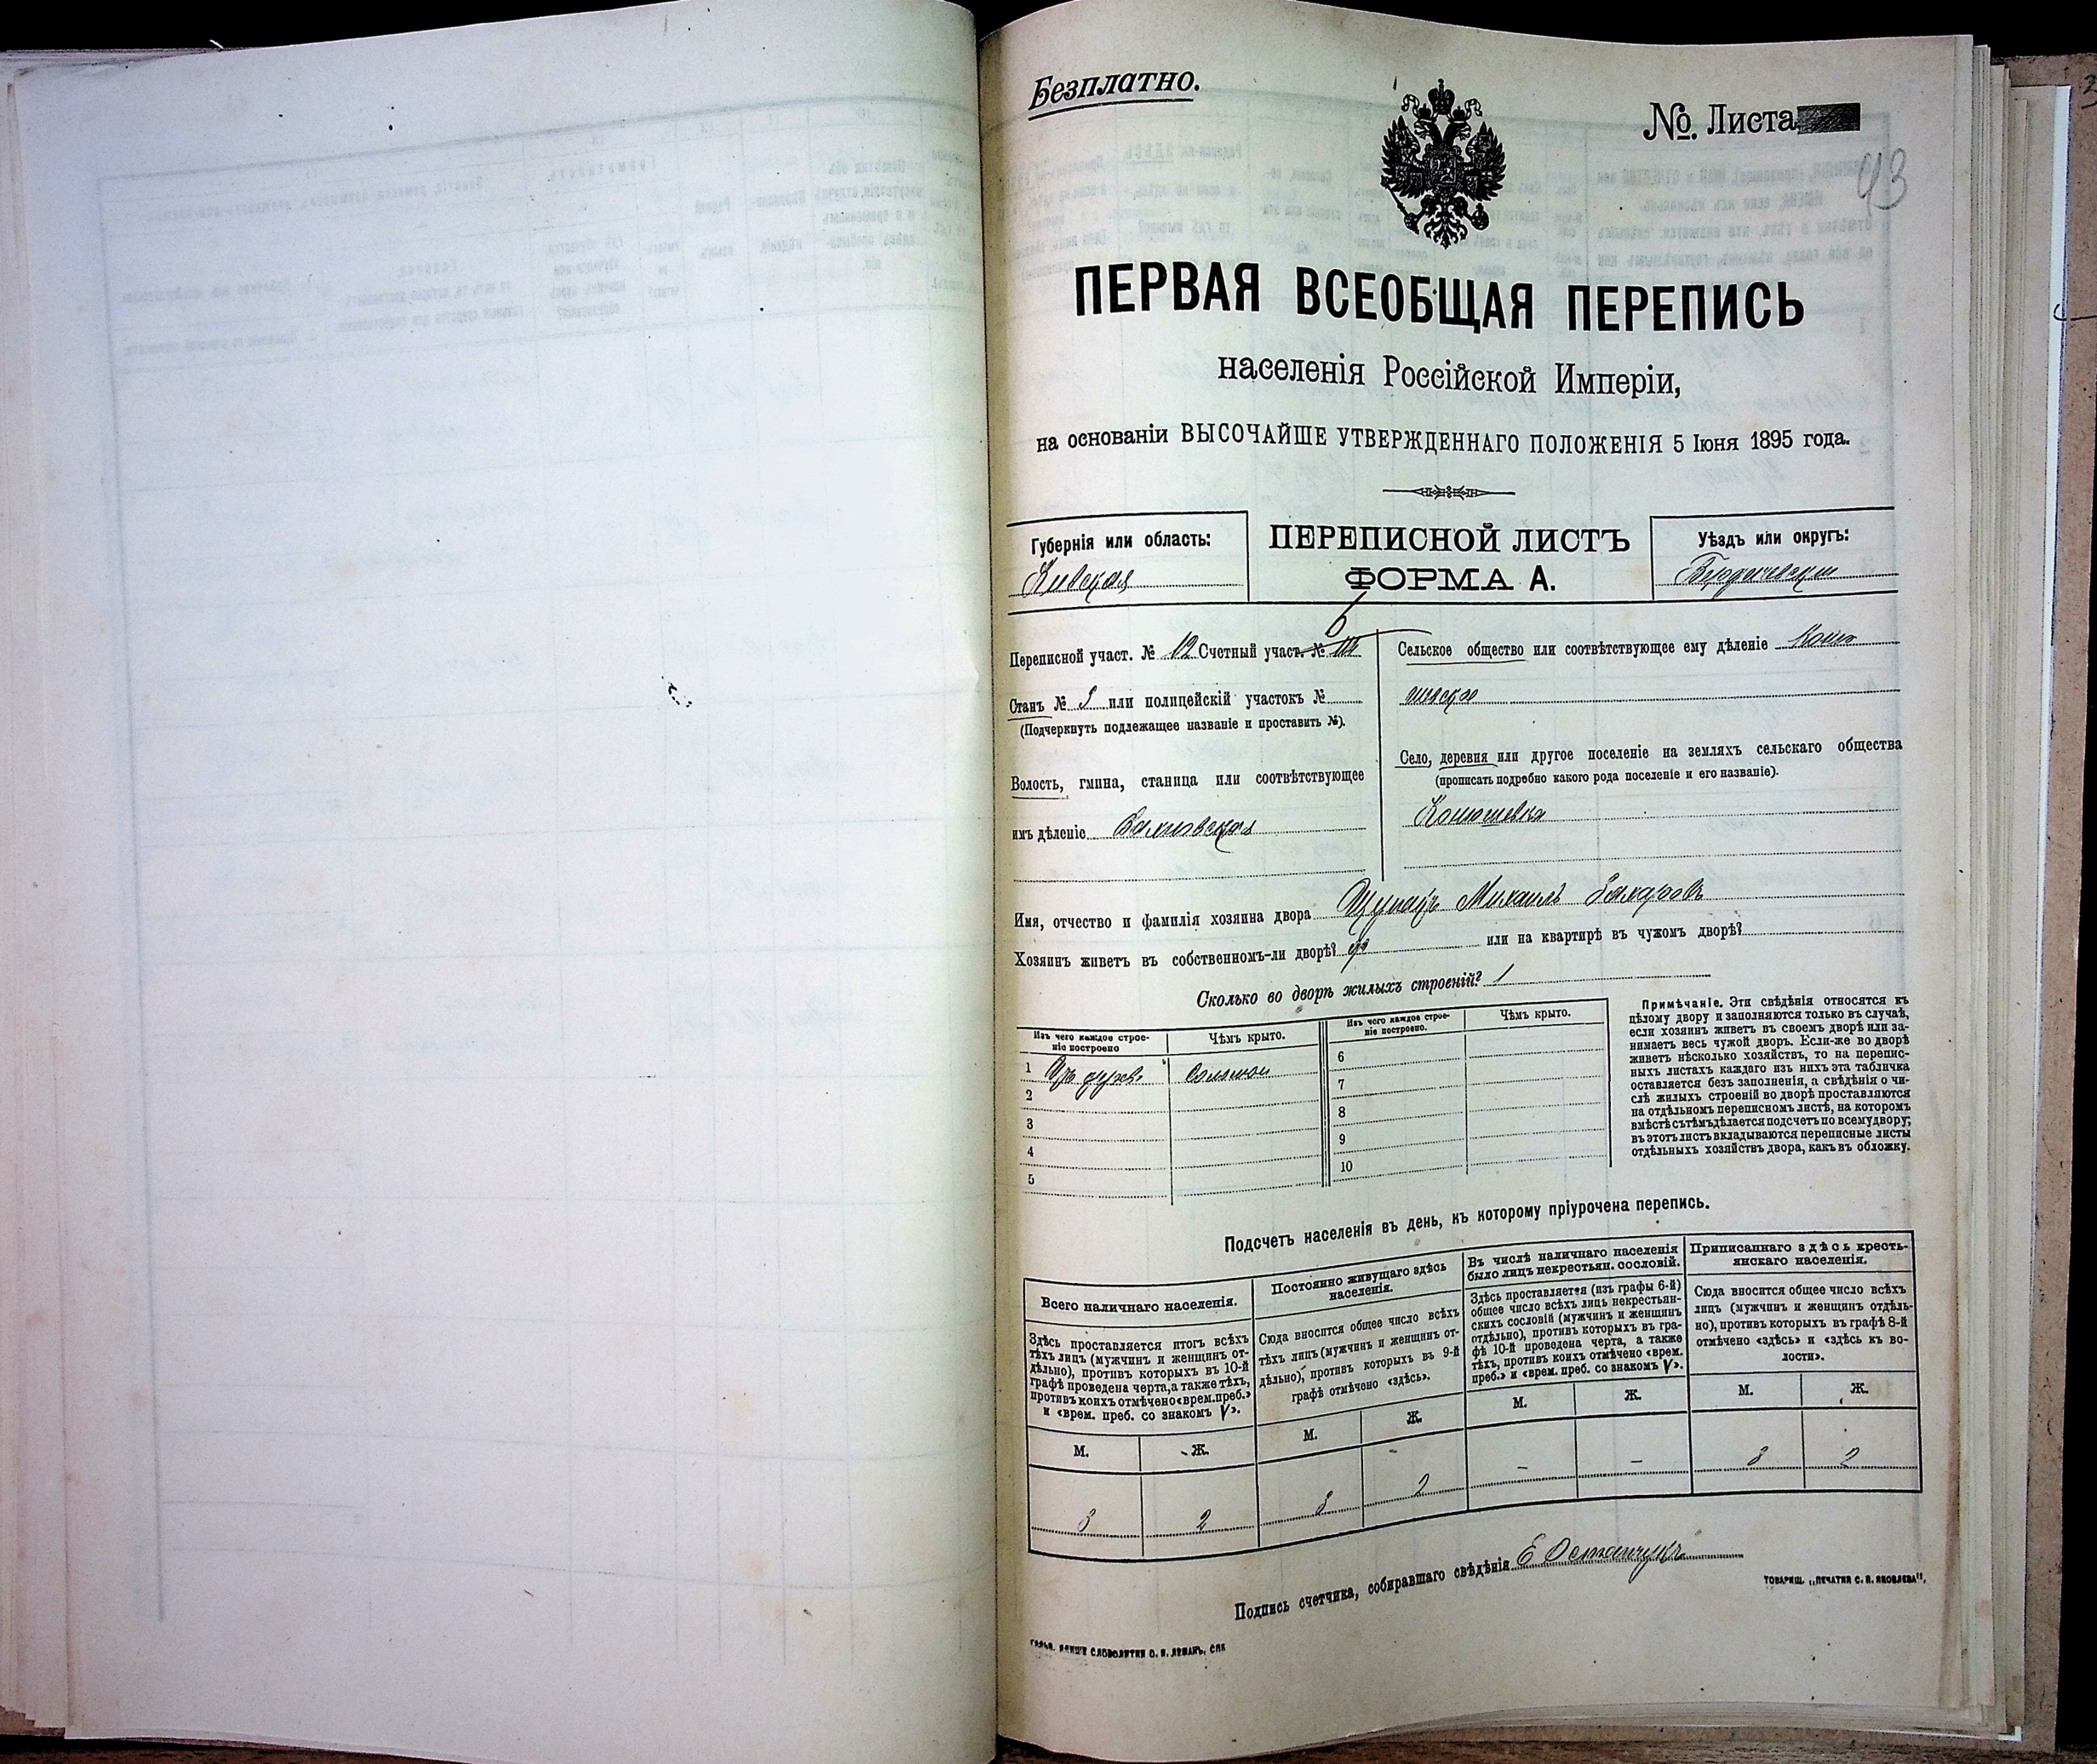 Безплатно.
№. Листа
93
ПЕРВАЯ ВСЕОБЩАЯ ПЕРЕПИСЬ
населенія Россійской Имперіи,
на основаніи ВЫСОЧАЙШЕ УТВЕРЖДЕННАГО ПОЛОЖЕНІЯ 5 Іюня 1895 года.
Губернія или область:
Кіевская
ПЕРЕПИСНОЙ ЛИСТЪ
ФОРМА А.
Уѣздъ или округъ:
Бердичевскій
Переписной участ. № 12 Счетный участ. № 6
Станъ № или полицейскій участокъ №
(Подчеркнуть подлежащее названіе и проставить №).
Волость, гмина, станица или соотвѣтствующее
имъ дѣленіе Вахновская
Сельское общество или соотвѣтствующее ему дѣленіе Коню
шевское
Село, деревня или другое поселеніе на земляхъ сельскаго общества
(прописать подробно какого рода поселеніе и его названіе).
Конюшевка
Имя, отчество и фамилія хозяина двора Михаилъ
Хозяинъ живетъ въ собственномъ-ли дворѣ? да или на квартирѣ въ чужомъ дворѣ?
Сколько во дворѣ жилыхъ строеній? 1
Изъ чего каждое строе-
ніе построено
Чѣмъ крыто.
Изъ чего каждое строе-
ніе построено.
Чѣмъ крыто.
1 Изъ дерева Соломой
2
3
4
5
6
7
8
9
10
Примѣчаніе. Эти свѣдѣнія относятся къ
цѣлому двору и заполняются только въ случаѣ,
если хозяинъ живетъ въ своемъ дворѣ или за-
нимаетъ весь чужой дворъ. Если-же во дворѣ
живетъ нѣсколько хозяйствъ, то на перепис-
ныхъ листахъ каждаго изъ нихъ эта табличка
оставляется безъ заполненія, а свѣдѣнія о чи-
слѣ жилыхъ строеній во дворѣ проставляются
на отдѣльномъ переписномъ листѣ, на которомъ
вмѣстѣ съ тѣмъ дѣлается подсчетъ по всему двору;
въ этотъ листъ вкладываются переписные листы
отдѣльныхъ хозяйствъ двора, какъ въ обложку.
Подсчетъ населенія въ день, къ которому пріурочена перепись.
Всего наличнаго населенія.
Здѣсь проставляется итогъ всѣхъ
тѣхъ лицъ (мужчинъ и женщинъ от-
дѣльно), противъ которыхъ въ 10-й
графѣ проведена черта, а также тѣхъ,
противъ коихъ отмѣчено «врем. преб.»
и «врем. преб. со знакомъ V».
М. Ж.
3 2
Постоянно живущаго здѣсь
населенія.
Сюда вносится общее число всѣхъ
тѣхъ лицъ (мужчинъ и женщинъ от-
дѣльно), противъ которыхъ въ 9-й
графѣ отмѣчено «здѣсь».
М. Ж.
3 2
Въ числѣ наличнаго населенія
было лицъ некрестьян. сословій.
Здѣсь проставляется (изъ графы 6-й)
общее число всѣхъ лицъ некрестьян-
скихъ сословій (мужчинъ и женщинъ
отдѣльно), противъ которыхъ въ гра-
фѣ 10-й проведена черта, а также
тѣхъ, противъ коихъ отмѣчено «врем.
преб.» и «врем. преб. со знакомъ V».
М. Ж.
– –
Приписаннаго здѣсь кресть-
янскаго населенія.
Сюда вносится общее число всѣхъ
лицъ (мужчинъ и женщинъ отдѣль-
но), противъ которыхъ въ графѣ 8-й
отмѣчено «здѣсь» и «здѣсь къ во-
лости».
М. Ж.
3 2
Подпись счетчика, собиравшаго свѣдѣнія Е Остапчукъ
ТОВАРИЩ. „ПЕЧАТНЯ С. П. ЯКОВЛЕВА",
СЛОВОЛИТНИ О. И. ЛЕМАНЪ, СПБ